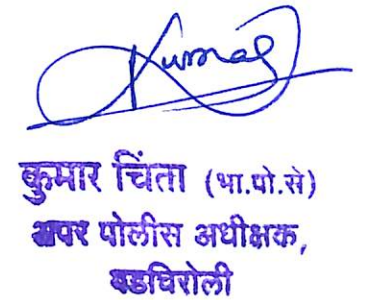 Kumar
कुमार चिंता (भा.पो.से)
अपर पोलीस अधीक्षक,
गडचिरोली